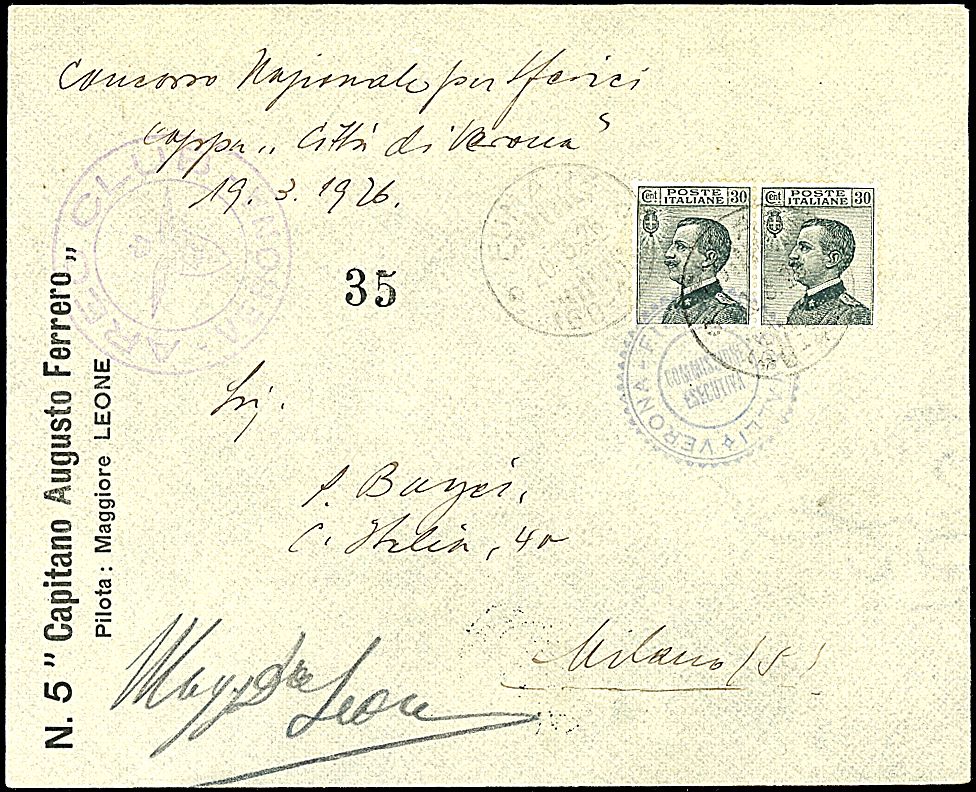 Concorso Nazionale per Sferici
Coppa „Città di Verona"
19. 3. 1926.
35
Cent POSTE ITALIANE 30
Cent POSTE ITALIANE 30
AREO CLUB
VERONA
Sig.
C. Italia, 40
Milano
Magg Leone
N. 5 " Capitano Augusto Ferrero "
Pilota : Maggiore LEONE